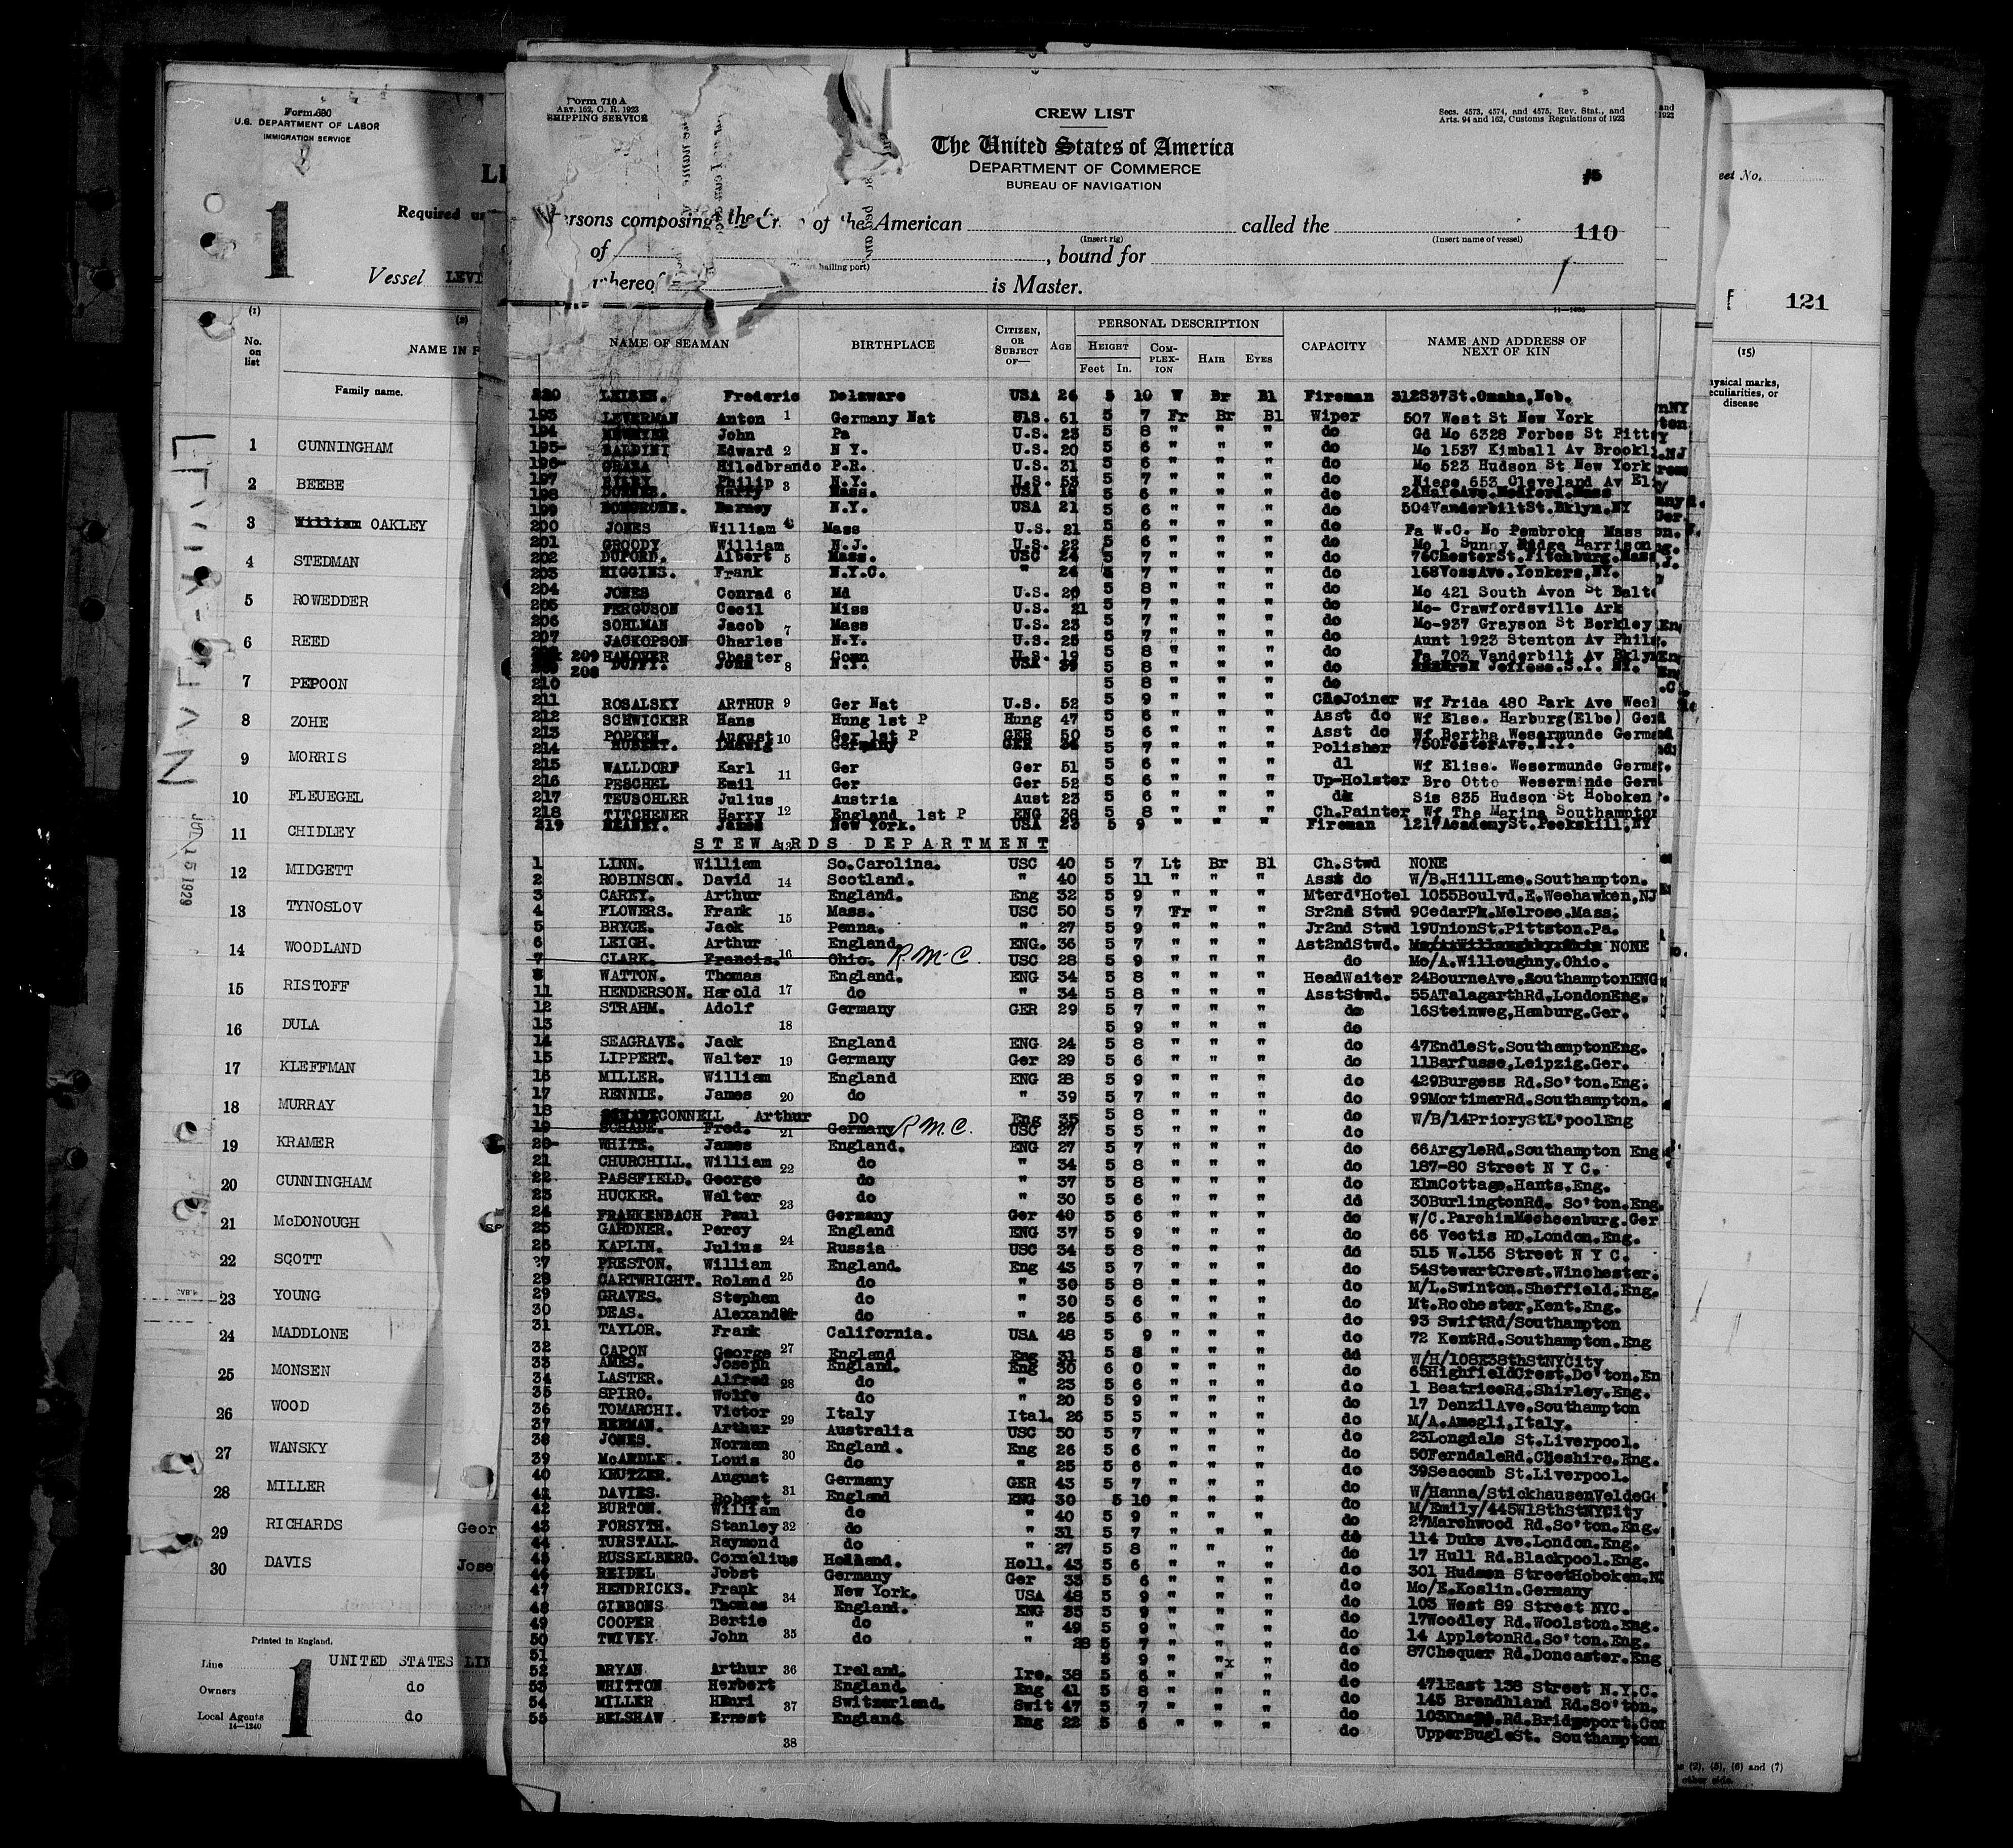 Form 680
U.S. DEPARTMENT OF LABOR
IMMIGRATION SERVICE
1
Required
Vessel LEVI
(1)
(2)
No. on list
NAME IN F
Family name.
1 CUNNINGHAM
2 BEEBE
3 William OAKLEY
4 STEDMAN
5 ROWEDDER
6 REED
7 PEPOON
8 ZOHE
9 MORRIS
10 FLEUEGEL
11 CHIDLEY
12 MIDGETT
13 TYNOSLOV
14 WOODLAND
15 RISTOFF
16 DULA
17 KLEFFMAN
18 MURRAY
19 KRAMER
20 CUNNINGHAM
21 McDONOUGH
22 SCOTT
23 YOUNG
24 MADDLONE
25 MONSEN
26 WOOD
27 WANSKY
28 MILLER
29 RICHARDS Geor
30 DAVIS Jose
Printed in England.
Line UNITED STATES LIN
Owners do
Local Agents do
14—1240
1
Form 710 A
ART. 162, C. R. 1923
SHIPPING SERVICE
CREW LIST
The United States of America
DEPARTMENT OF COMMERCE
BUREAU OF NAVIGATION
Secs. 4573, 4574, and 4575, Rev. Stat., and
Arts. 94 and 162, Customs Regulations of 1923
ersons composing the Cr of the American called the 110
(Insert rig) (Insert name of vessel)
of , bound for
hailing port)
whereof is Master.
NAME OF SEAMAN BIRTHPLACE CITIZEN, OR SUBJECT OF— AGE PERSONAL DESCRIPTION CAPACITY NAME AND ADDRESS OF NEXT OF KIN
HEIGHT COMPLEXION HAIR EYES
Feet In.
220 LEISEN. Frederic Delaware USA 26 5 10 W Br Bl Fireman 312837St.Omaha,Neb.
193 LEVERMAN Anton 1 Germany Nat U.S. 61 5 7 Fr Br Bl Wiper 507 West St New York
194 John Pa U.S. 23 5 8 " " " do Gd Mo 6328 Forbes St Pitts
195 BALDINI Edward 2 N Y. U.S. 20 5 6 " " " do Mo 1537 Kimball Av Brookl
196 Hiledbrando P.R. U.S. 31 5 6 " " " do Mo 523 Hudson St New York
197 Philip 3 N.Y. U.S. 53 5 7 " " " do Niece 653 Cleveland Av Eli
198 Harry Mass. USA 5 6 " " " do
199 Barney N.Y. USA 21 5 6 " " " do 504VanderbiltSt.Bklyn.NY
200 JONES William 4 Mass U.S. 21 5 6 " " " do Fa W.C. No Pembroke Mass
201 GROODY William N.J. U.S. 22 5 6 " " " do Mo 1 Sunny Ridge Harrison
202 DUFORD. Albert 5 Mass. USC 24 5 7 " " " do 76ChesterSt.Fitchburg.Mass
203 HIGGINS. Frank N.Y.C. " 24 5 7 " " " do 168VossAve.Yonkers,NY.
204 JONES Conrad 6 Md U.S. 20 5 8 " " " do Mo 421 South Avon St Balt
205 FERGUSON Cecil Miss U.S. 21 5 7 " " " do Mo- Crawfordsville Ark
206 SOHLMAN Jacob 7 Mass U.S. 23 5 7 " " " do Mo-937 Grayson St Berkley
207 JACKOPSON Charles N.Y. U.S. 25 5 7 " " " do Aunt 1923 Stenton Av Phil
209 HANOVER Chester Conn U.S. 19 5 8 " " " do Fa 703 Vanderbilt Av Bklyn
208 DUFFY. John 8 N.Y. USA 5 8 " " " do
210 5 8 " " " do
211 ROSALSKY ARTHUR 9 Ger Nat U.S. 52 5 9 " " " Joiner Wf Frida 480 Park Ave Weel
212 SCHWICKER Hans Hung 1st P Hung 47 5 6 " " " Asst do Wf Else. Harburg(Elbe) Ger
213 POPKEN August 10 Ger 1st P GER 50 5 6 " " " Asst do Wf Bertha Wesermunde Germ
214 HUBERT. Ludwig Germany GER 5 7 " " " Polisher 750FosterAve.N.Y.
215 WALLDORF Karl 11 Ger Ger 51 5 6 " " " dl Wf Elise. Wesermunde Germ
216 PESCHEL Emil Ger Ger 52 5 6 " " " Up-Holster Bro Otto Weserminde Germ
217 TEUSCHLER Julius Austria Aust 23 5 6 " " " Sis 835 Hudson St Hoboken
218 TITCHENER Harry 12 England 1st P ENG 38 5 8 " " " Ch.Painter Wf The Marina Southampton
219 James New York. USA 23 5 9 " " " Fireman 1217AcademySt.Peekskill,NY
STEWARDS DEPARTMENT
1 LINN. William So.Carolina. USC 40 5 7 Lt Br Bl Ch.Stwd NONE
2 ROBINSON. David 14 Scotland. " 40 5 11 " " " Asst do W/B.HillLane.Southampton.
3 CAREY. Arthur England. Eng 32 5 9 " " " Mterd'Hotel 1055Boulvd.E.Weehawken,NJ
4 FLOWERS. Frank 15 Mass. USC 50 5 7 Fr " " Sr2nd Stwd 9CedarPk.Melrose.Mass.
5 BRYCE. Jack Penna. " 27 5 9 " " " Jr2nd Stwd 19UnionSt.Pittston.Pa.
6 LEIGH. Arthur England ENG. 36 5 7 " " " Ast2ndStwd. NONE
7 CLARK. Francis. 16 Ohio. R.M.C. USC 28 5 9 " " " do Mo/A.Willoughny.Ohio.
8 WATTON. Thomas England. ENG 34 5 8 " " " HeadWaiter 24BourneAve.SouthamptonENG
11 HENDERSON. Harold 17 do " 34 5 8 " " " AsstStwd. 55ATalagarthRd.LondonEng.
12 STRAHM. Adolf Germany GER 29 5 7 " " " do 16Steinweg,Hamburg.Ger.
13 18 5 9 " " " do
14 SEAGRAVE. Jack England ENG 24 5 8 " " " do 47EndleSt.SouthamptonEng.
15 LIPPERT. Walter 19 Germany Ger 29 5 6 " " " do 11Barfusse,Leipzig.Ger.
16 MILLER. William England ENG 28 5 9 " " " do 429Burgess Rd.So'ton.Eng.
17 RENNIE. James 20 do " 39 5 7 " " " do 99MortimerRd.Southampton.
18 CONNELL Arthur DO Eng 35 5 8 " " " do W/B/14PrioryStL'poolEng
19 SCHADE. Fred. 21 Germany R.M.C. USC 27 5 5 " " " do
20 WHITE. James England. ENG 27 5 7 " " " do 66ArgyleRd.Southampton Eng
21 CHURCHILL. William 22 do " 34 5 8 " " " do 187-80 Street N Y C.
22 PASSFIELD. George do " 37 5 8 " " " do ElmCottage.Hants.Eng.
23 HUCKER. Walter 23 do " 30 5 6 " " " dd 30BurlingtonRd. So'ton.Eng.
24 FRANKENBACH Paul Germany Ger 40 5 6 " " " do W/C.ParchimMecheenburg.Ger
25 GARDNER. Percy 24 England ENG 37 5 9 " " " do 66 Vectis RD.London.Eng.
26 KAPLIN. Julius Russia USC 34 5 8 " " " dd 515 W.156 Street N Y C.
27 PRESTON. William England. Eng 43 5 7 " " " do 54StewartCrest.Winchester.
28 CARTWRIGHT. Roland 25 do " 30 5 8 " " " do M/L.Swinton.Sheffield.Eng.
29 GRAVES. Stephen do " 30 5 6 " " " do Mt.Rochester,Kent.Eng.
30 DEAS. Alexander do " 26 5 6 " " " do 93 SwiftRd/Southampton
31 TAYLOR. Frank California. USA 48 5 9 " " " do 72 KentRd.Southampton.Eng
32 CAPON George 27 England Eng 31 5 8 " " " dd W/H/108E38thStNYCity
33 AMES. Joseph England. Eng 30 6 0 " " " do 65HighfieldCrest.Do'ton.En
34 LASTER. Alfred 28 do " 23 5 6 " " " do 1 BeatriceRd.Shirley.Eng.
35 SPIRO. Wolfe do " 20 5 9 " " " do 17 DenzilAve.Southampton
36 TOMARCHI. Victor 29 Italy Ital. 26 5 5 " " " do M/A.Amegli,Italy.
37 HERMAN. Arthur Australia USC 50 5 7 " " " do 23Longdale St.Liverpool.
38 JONES. Norman 30 England. Eng 26 5 6 " " " do 50FerndaleRd.Cheshire.Eng.
39 McARDLE. Louis do " 25 5 6 " " " do 39Seacomb St.Liverpool.
40 KRUTZER. August Germany GER 43 5 7 " " " do W/Hanna/StickhausenVeldeG
41 DAVIES. Robert 31 England ENG 30 5 10 " " " do M/Emily/445W18thStNYCity
42 BURTON. William do " 40 5 9 " " " do 27Marchwood Rd.So'ton.Eng.
43 FORSYTH. Stanley 32 do " 31 5 7 " " " do 114 Duke Ave.London.Eng.
44 TURSTALL. Raymond do " 27 5 8 " " " do 17 Hull Rd.Blackpool.Eng.
45 RUSSELBERG. Cornelius Holland. Holl. 43 5 6 " " " do 301 Hudson StreetHoboken.N
46 REIDEL Jobst Germany Ger 33 5 6 " " " do Mo/E.Koslin.Germany
47 HENDRICKS. Frank 34 New York. USA 48 5 9 " " " do 103 West 89 Street NYC.
48 GIBBONS Thomas England. ENG 35 5 9 " " " do 17Woodley Rd.Woolston.Eng.
49 COOPER Bertie do " 49 5 9 " " " do 14 AppletonRd.So'ton.Eng.
50 TWIVEY John 35 do " 28 5 7 " " " do 87Chequer Rd.Doncaster.Eng
51 5 9 " " x " do
52 BRYAN Arthur 36 Ireland. Ire. 38 5 6 " " " do 471East 138 Street N.Y.C.
53 WHITTON Herbert England. Eng 41 5 8 " " " do 145 Brendhland Rd.So'ton.
54 MILLER HEnri 37 Switzerland. Swit 47 5 7 " " " do Rd.Bridgeport.Con
55 BELSHAW Ernest England. Eng 22 5 6 " " " do UpperBugleSt. Southampton
38
eet No.
121
(15)
ysical marks,
eculiarities, or
disease
(2), (5), (6) and (7)
other side.